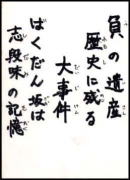 負の遺産
歴史に残る
大事件
はくだん坂は
志段味の記憶